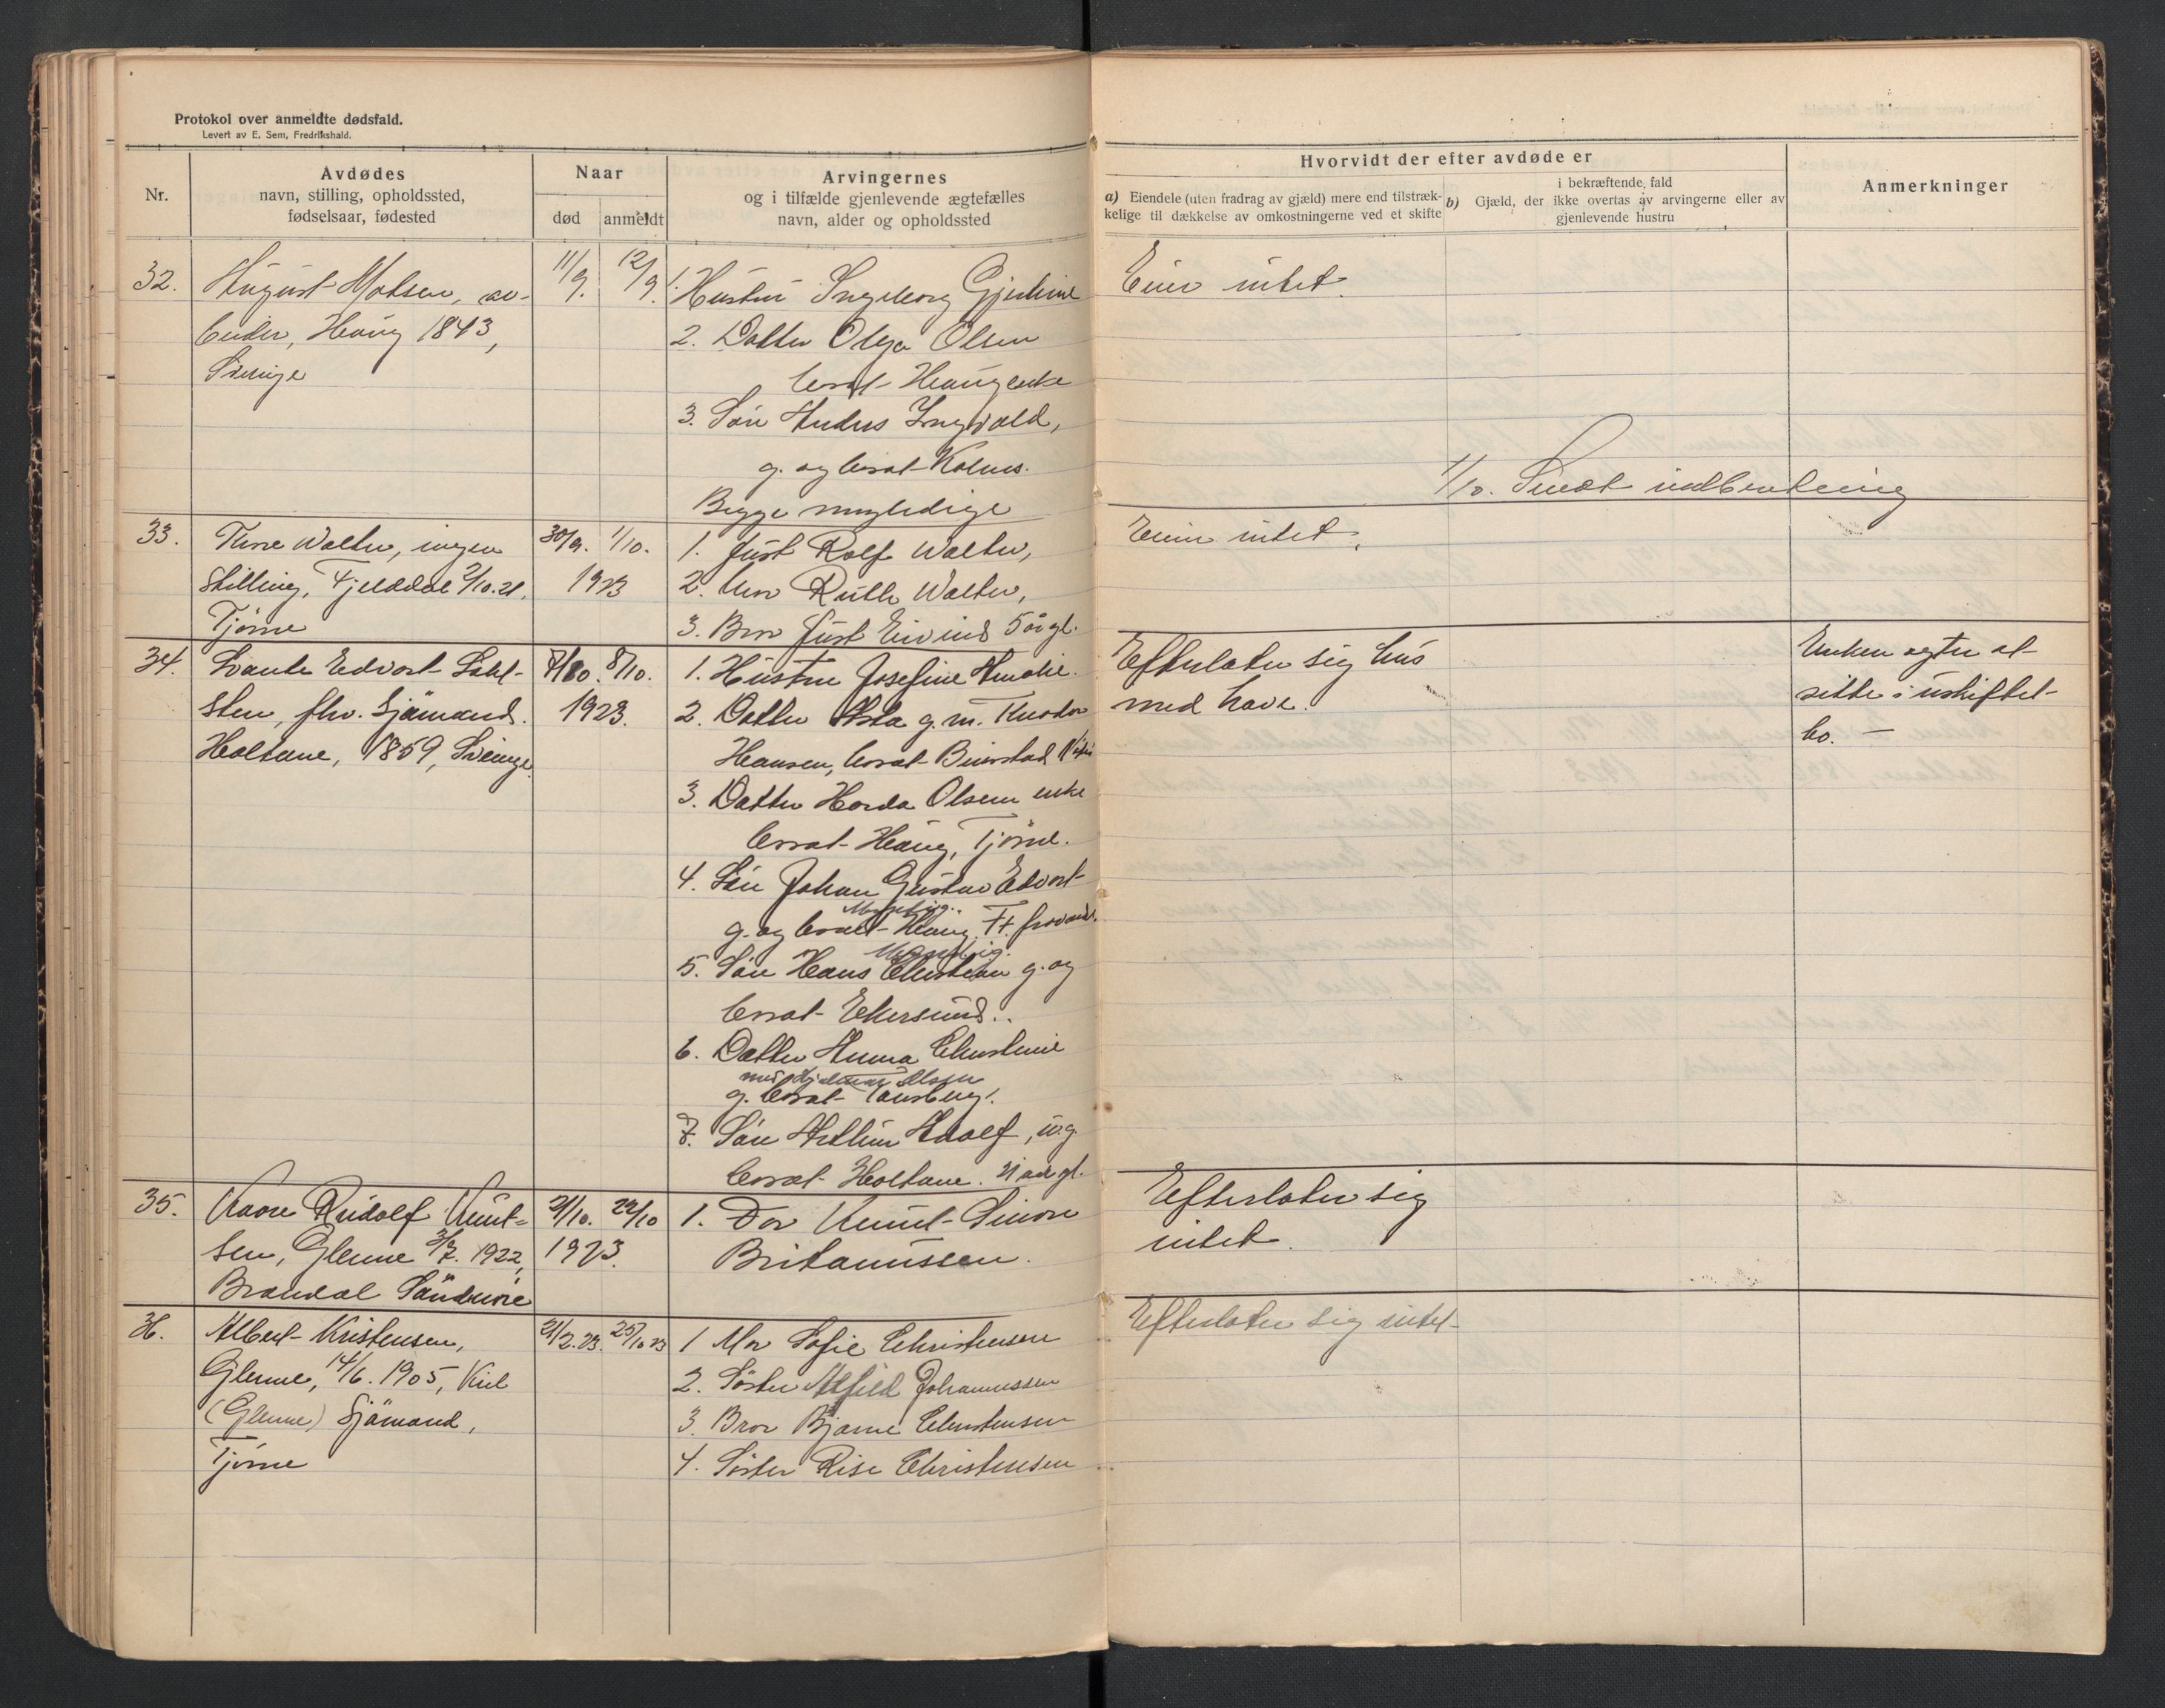 Protokol over anmeldte dødsfald.
Levert av E. Sem, Fredrikshald.
Nr.
Avdødes
navn, stilling, opholdssted,
fødselsaar, fødested
Naar
død
anmeldt
Arvingernes
og i tilfælde gjenlevende ægtefælles
navn, alder og opholdssted
Hvorvidt der efter avdøde er
a) Eiendele (uten fradrag av gjæld) mere end tilstræk-
kelige til dækkelse av omkostningerne ved et skifte
i bekræftende fald
b) Gjæld, der ikke overtas av arvingerne eller av
gjenlevende hustru
Anmerkninger
32.
August Matsen, ar-
beider, Haug 1843,
Sverige
11/9.
12/9.
1. Hustru Ingeborg
2. Datter Olga Olsen
bosat Haug enke
3. Søn Anders Ingvald,
g. og bosat Kalnes.
Begge myndige
Eier intet.
1/10. Sendt indberetning
33.
Ture Walter, ingen
stilling, Fjelddal 2/10.21.
Tjøme
30/9. 1/10.
1923
1. Just Rolf Walter,
2. Mor Ruth Walter,
3. Bror Just Eivind 5 år gl.
Eier intet.
34.
Svante Edvart Sahl-
sten, fhv. Sjømand.
Holtane, 1859, Sverige.
7/10. 8/10.
1923.
1. Hustru Josefine Amalie.
2. Datter Asta g. m. Teodor
Hansen, bosat
3. Datter Horda Olsen enke
bosat Haug, Tjøme.
4. Søn Johan Gustav Edvart
g. og bosat Haug, Tj.
5. Søn Hans Christian g. og
bosat Ekersund.
6. Datter Anna Christine
med Hjalmar Olsen
g. bosat Tønsberg.
7. Søn Adolf, ug.
bosat Holtane. 21 aar gl.
Efterlater sig hus
med have.
Enken agter at
sitte i uskiftet
bo. —
35.
Kaare Rudolf Knut-
sen, Glenne 3/7. 1922,
Brandal Søndmøre
21/10. 22/10
1923.
1. Far Knut Simon
Britanussen.
Efterlater sig
intet.
36.
Albert Kristensen,
Glenne, 14/6. 1905,
(Glenne) Sjømand,
Tjøme
21/2.23. 25/10 23
1 Mor Sofie Christensen
2. Søster Alfild Johannessen
3. Bror Bjarne Christensen
4. Søster Rise Christensen
Efterlater sig intet